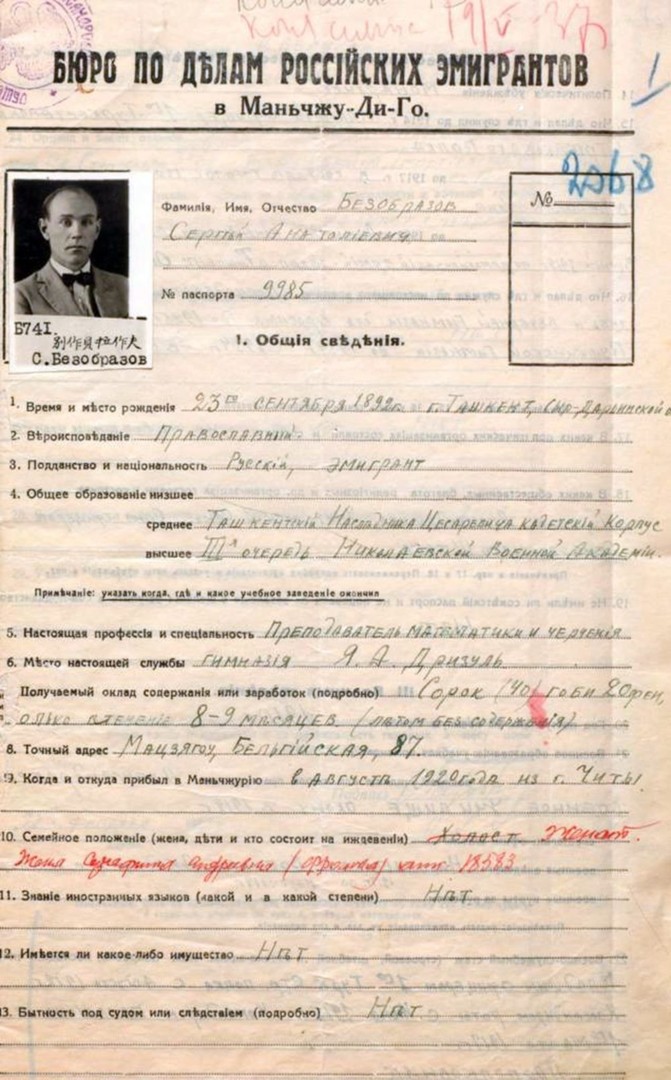 19/V-37
БЮРО ПО ДѢЛАМ РОССІЙСКИХ ЭМИГРАНТОВ
в Маньчжу-Ди-Го.
2068
№
Фамилія, Имя, Отчество БЕЗОБРАЗОВ
СЕРГѢЙ АНАТОЛІЕВИЧ
№ паспорта 9985
Б741.
С.Безобразов
1. Общія свѣдѣнія.
1. Время и мѣсто рожденія 23го СЕНТЯБРЯ 1892г. г. ТАШКЕНТ, СЫР-ДАРЬИНСКОЙ
2. Вѣроисповѣданіе ПРАВОСЛАВНЫЙ
3. Подданство и національность РУССКІЙ, ЭМИГРАНТ
4. Общее образованіе низшее
среднее ТАШКЕНТСКІЙ НАСЛѢДНИКА ЦЕСАРЕВИЧА КАДЕТСКІЙ КОРПУС
высшее IIIя ОЧЕРЕДЬ НИКОЛАЕВСКОЙ ВОЕННОЙ АКАДЕМІИ.
Примѣчаніе: указать когда, гдѣ и какое учебное заведеніе окончил
5. Настоящая профессія и спеціальность ПРЕПОДАВАТЕЛЬ МАТЕМАТИКИ И ЧЕРЧЕНІЯ
6. Мѣсто настоящей службы ГИМНАЗІЯ Я. А. ДРИЗУЛЬ
Получаемый оклад содержанія или заработок (подробно) СОРОК (40) ГОБИ 20 ФЕН,
ОЛЬКО В ТЕЧЕНІЕ 8-9 МѢСЯЦЕВ (ЛѢТОМ БЕЗ СОДЕРЖАНІЯ)
8. Точный адрес МАЦЗЯГОУ, БЕЛЬГІЙСКАЯ, 87.
9. Когда и откуда прибыл в Маньчжурію В АВГУСТѢ 1920 ГОДА ИЗ Г. ЧИТЫ.
10. Семейное положеніе (жена, дѣти и кто состоит на иждевеніи) ХОЛОСТ. Женат.
Жена Серафима Андреевна 18583
11. Знаніе иностранных языков (какой и в какой степени) НѢТ.
12. Имѣется ли какое-либо имущество НѢТ
13. Бытность под судом или слѣдствіем (подробно) НѢТ.